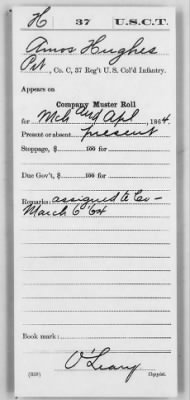 H 37 U.S.C.T.
Amos Hughes
Pvt, Co. C, 37 Reg't U.S. Col'd Infantry.
Appears on
Company Muster Roll
for Mch and Apl, 1864
Present or absent present
Stoppage, $ 100 for
Due Gov't, $ 100 for
Remarks: assigned to Co -
March 6 '64
Book mark:
O'Leary
(358) Copyist.